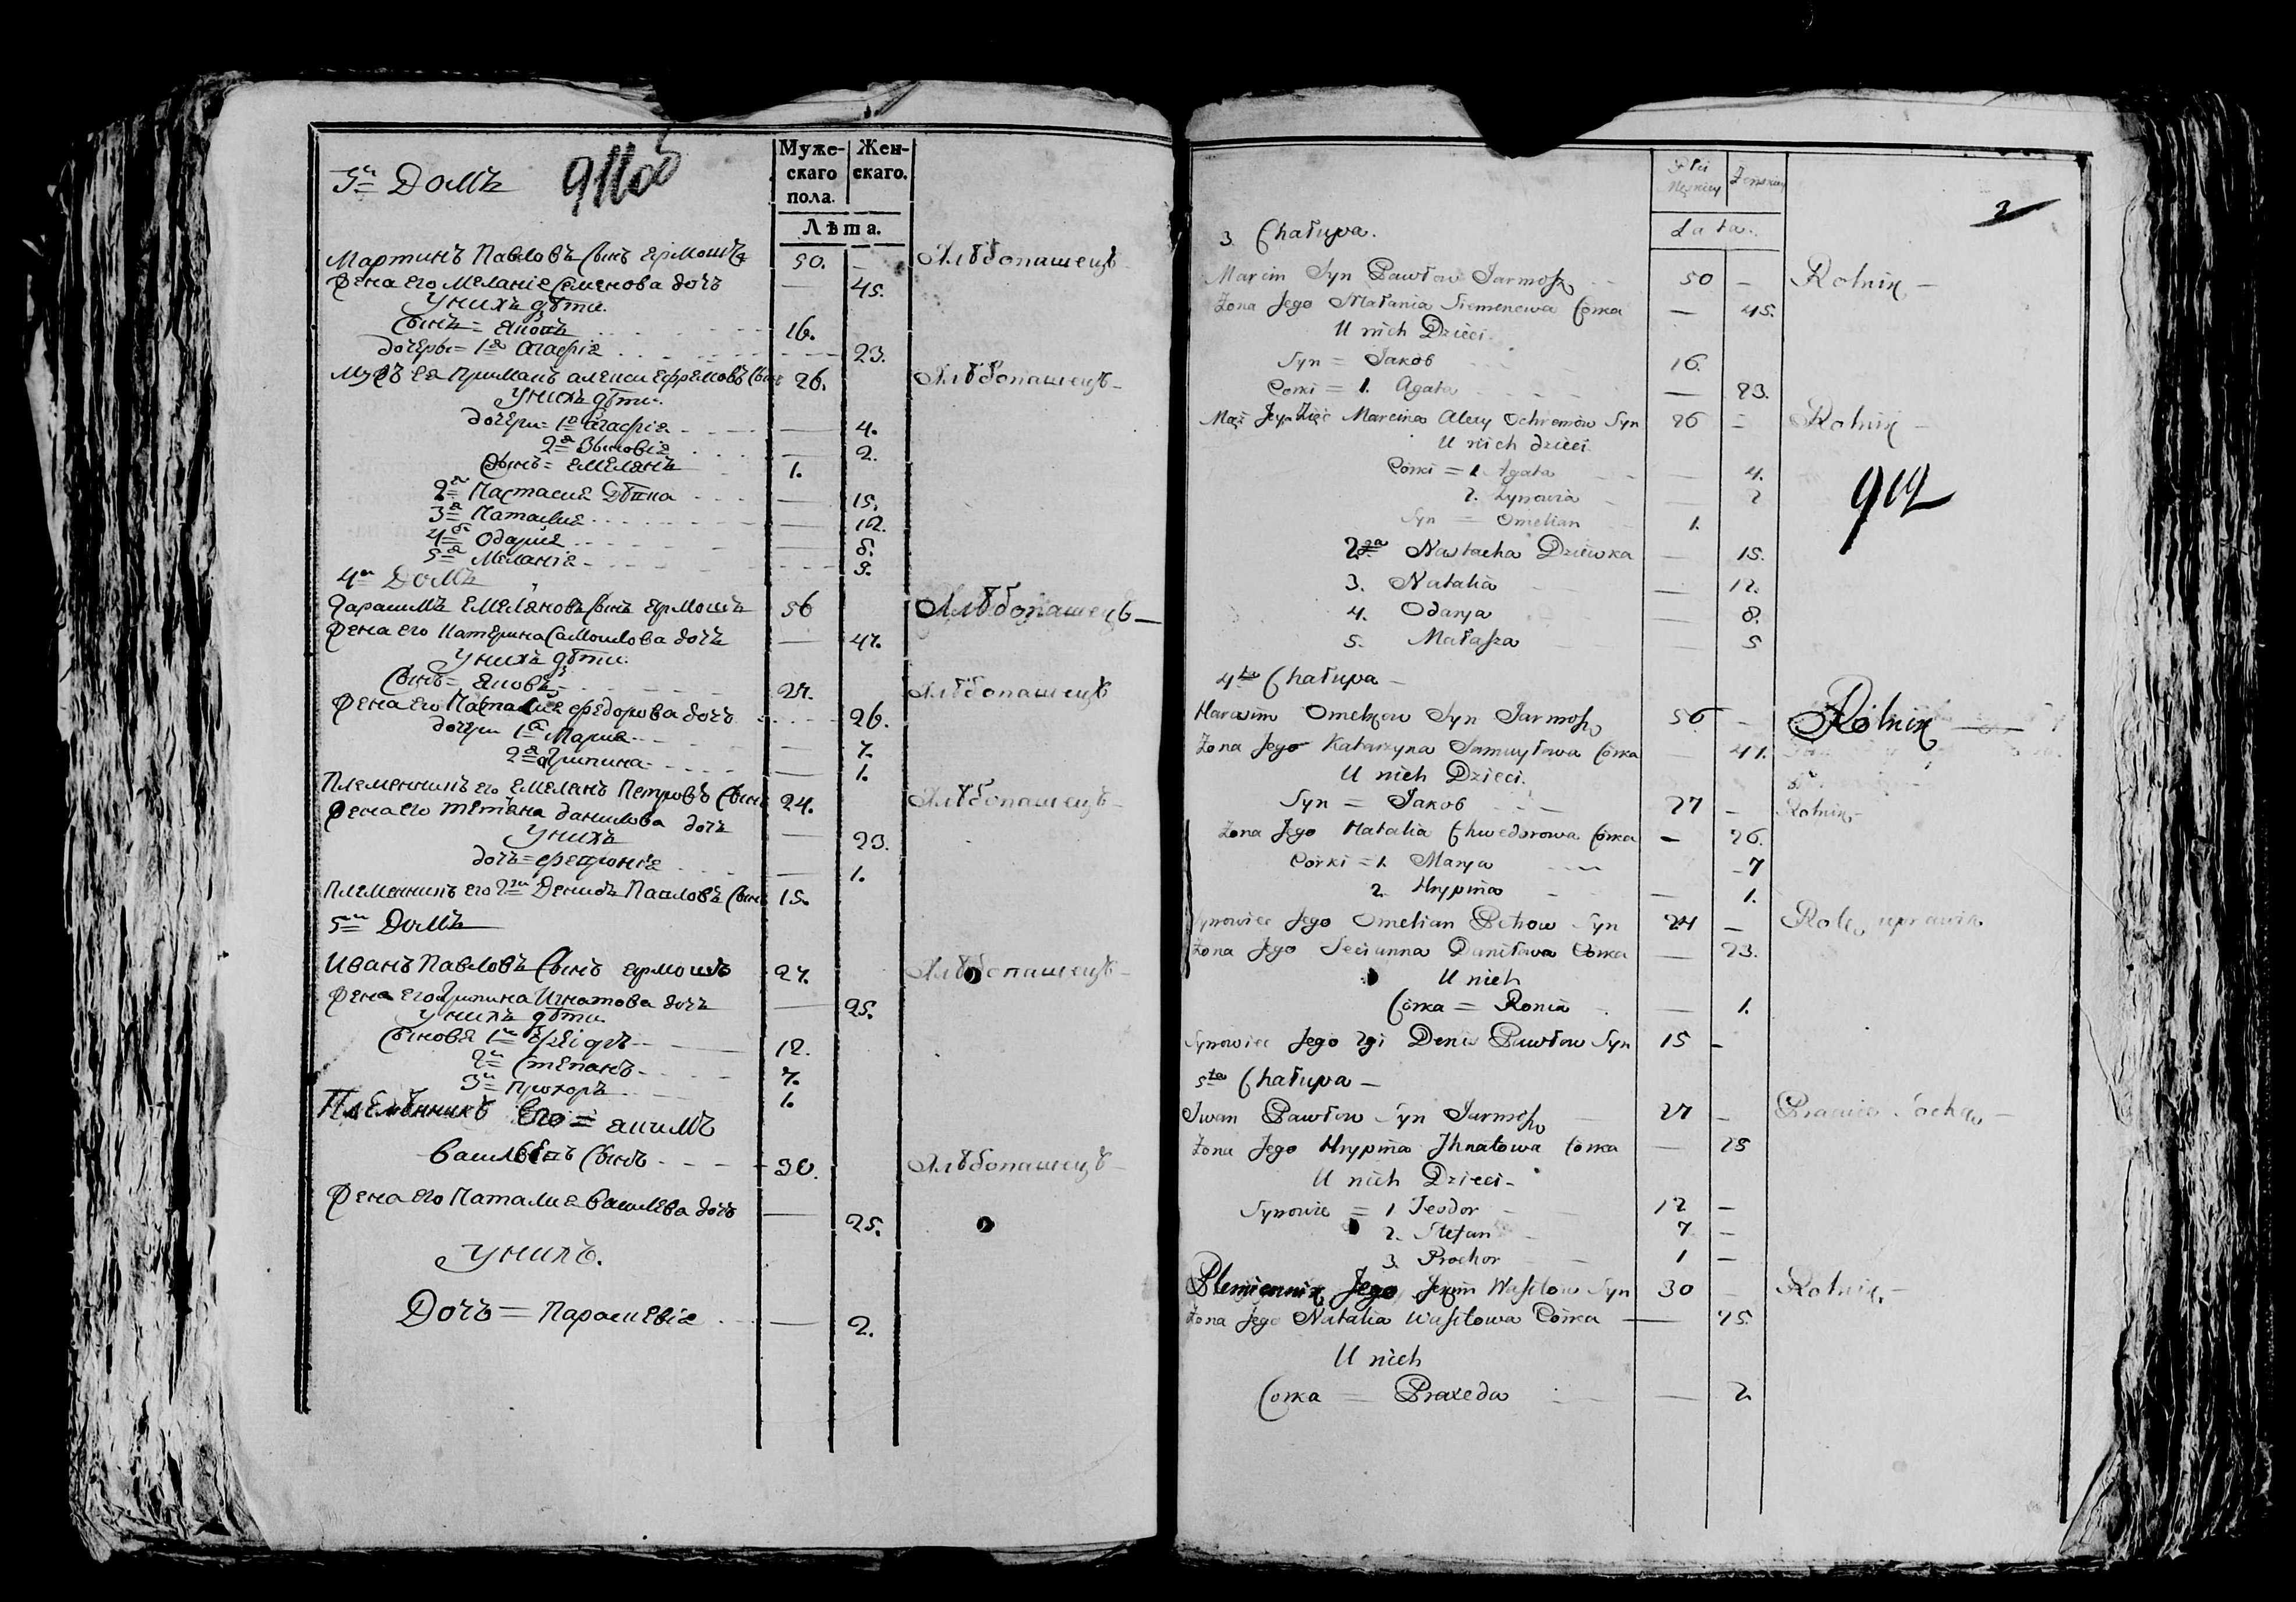 3й Домъ
911об
Муже-скаго пола.
Жен-скаго.
Лѣта.
Мартинъ Павловъ сынъ Ермошъ 50. – Хлѣбопашецъ
Жена его Меланіе Семенова дочь — 45.
У нихъ дѣти.
Сынъ = Яковъ 16.
Дочеры = 1я Агафіе 23.
Мужъ ея Примакъ Алекси Ефремовъ сынъ 26. Хлѣбопашецъ –
У нихъ дѣти.
Дочери = 1я Агафіе — 4.
2я Зѣновіе — 2.
Сынъ = Емелянъ 1.
2я Настасие Дѣвка — 15.
3я Наталие — 12.
4я Одарие — 8.
5я Меланіе 5.
4й Домъ
Гарасимъ Емеляновъ сынъ Ермошъ 56 Хлѣбопашецъ —
Жена его Катерина Самойлова дочь — 47.
У нихъ дѣти.
Сынъ = Яковъ 27. Хлѣбопашецъ
Жена его Наталие Федорова дочь 26.
дочери 1я Марие — 7.
2я Грипина — 1.
Племенникъ его Емелянъ Петровъ сынъ 24. Хлѣбопашецъ –
Жена его Тетѣяна Данилова дочь — 23.
У нихъ
дочь = Февроніе — 1.
Племенникъ его 2й Денисъ Павловъ сынъ 15.
5й Домъ
Иванъ Павловъ сынъ Ермошъ 27. Хлѣбопашецъ –
Жена его Грипина Игнатова дочь — 25.
У нихъ дѣти
Сыновя 1й 12.
2й Степанъ 7.
3й Прохоръ 1.
Племѣнникъ его = Акимъ
Василѣвъ сынъ 30. Хлѣбопашецъ –
Жена его Наталие Василева дочь — 25.
У нихъ.
Дочь = Параскевіе — 2.
Płci Męskiey Żenskiey
Lata.
2
3. Chałupa.
Marcin Syn Pawłow Jarmosz 50 – Rolnik –
Żona Jego Małania Siemenowa Córka — 45.
U nich Dzieci.
Syn = Jakób 16.
Corki = 1. Agata — 23.
Mąż Jey Zięć Marcina Alexy Ochremów Syn 26 – Rolnik –
U nich dzieci
Córki = 1. Agata — 4.
2. Zynowia — 2
Syn = Omelian 1.
912
2ga Nastacha Dziewka — 15.
3. Natalia — 12.
4. Odarya — 8.
5. Małaszka — 5
4ta Chałupa –
Harasim Omelkow Syn Jarmosz 56 – Rólnik —
Żona Jego Katarzyna Samuyłowa Córka — 47.
U nich Dzieci.
Syn = Jakob 27 – Rolnik –
Żona Jego Natalia Chwedorowa Córka – 26.
Córki = 1. Marya 7
2. Hrypina — 1.
Synowiec Jego Omelian Petrow Syn 24 – Rolę uprawia
Żona Jego Tecianna Daniłowa Córka — 23.
U nich
Córka = Ronia — 1.
Synowiec Jego 2gi Denis Pawłow Syn 15 –
5ta Chałupa –
Iwan Pawłow Syn Jarmosz 27 – Pracuie Sochą –
Żona Jego Hrypina Ihnatowa Córka — 25
U nich Dzieci –
Synowie = 1 Teodor 12 –
2. Stefan 7 –
3. Prochor 1 –
Plemiennik Jego Jekim Wasilow Syn 30 – Rolnik. –
Żona Jego Natalia Wasilowa Córka — 25.
U nich
Corka = Praxeda — 2